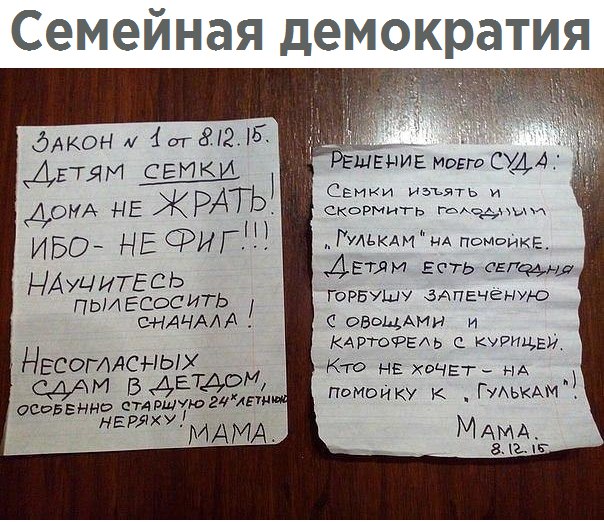 Семейная демократия
ЗАКОН N 1 от 8.12.15.
ДЕТЯМ СЕМКИ
ДОМА НЕ ЖРАТЬ!
ИБО - НЕ ФИГ!!!
НАУЧИТЕСЬ
ПЫЛЕСОСИТЬ
СНАЧАЛА!
НЕСОГЛАСНЫХ
СДАМ В ДЕТДОМ,
ОСОБЕННО СТАРШУЮ 24х ЛЕТНЮЮ
НЕРЯХУ!
МАМА.
РЕШЕНИЕ МОЕГО СУДА:
СЕМКИ ИЗЪЯТЬ И
СКОРМИТЬ ГОЛОДНЫМ
„ГУЛЬКАМ" НА ПОМОЙКЕ.
ДЕТЯМ ЕСТЬ СЕГОДНЯ
ГОРБУШУ ЗАПЕЧЁНУЮ
С ОВОЩАМИ И
КАРТОФЕЛЬ С КУРИЦЕЙ.
КТО НЕ ХОЧЕТ - НА
ПОМОЙКУ К „ГУЛЬКАМ"!
МАМА.
8.12.15